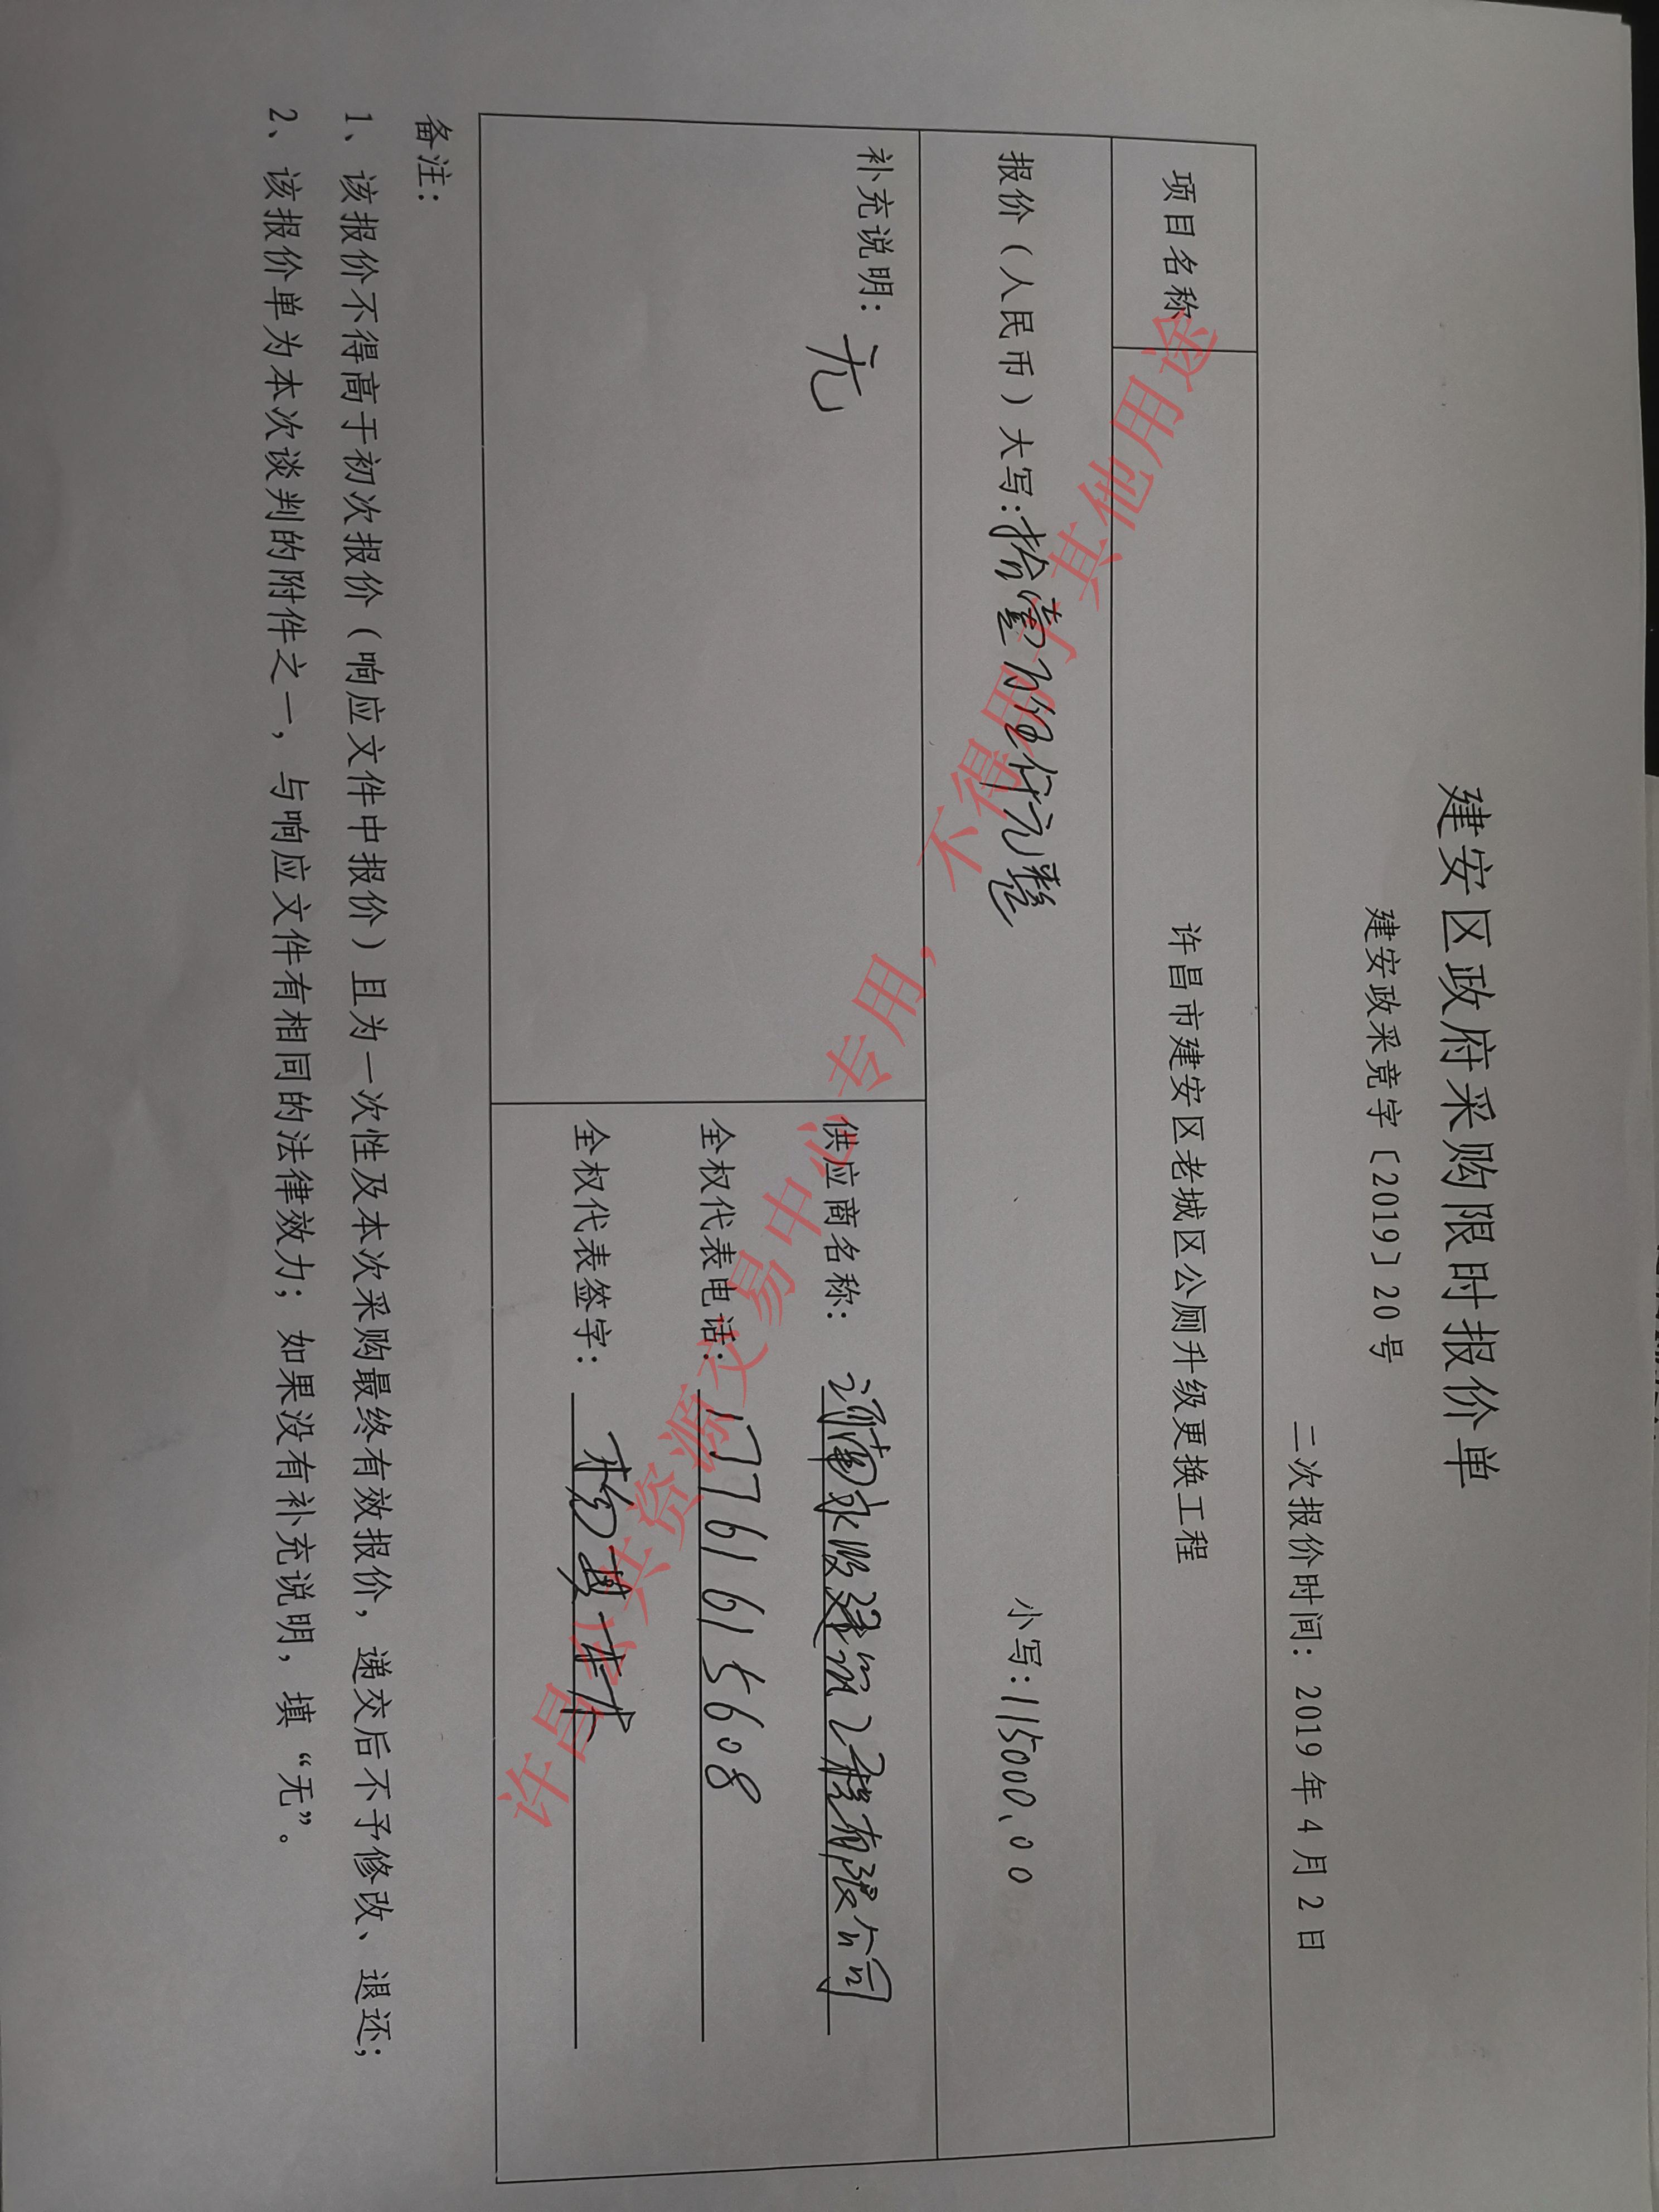 建安区政府采购限时报价单
建安政采竞字〔2019〕20号
二次报价时间：2019年4月2日
项目名称 许昌市建安区老城区公厕升级更换工程
报价（人民币）大写：拾壹万伍仟元整 小写：115000.00
补充说明：无
供应商名称： 河南永 建筑工程有限公司
全权代表电话：17761615608
全权代表签字：
备注：
1、该报价不得高于初次报价（响应文件中报价）且为一次性及本次采购最终有效报价，递交后不予修改、退还；
2、该报价单为本次谈判的附件之一，与响应文件有相同的法律效力；如果没有补充说明，填“无”。
许昌公共资源交易中心专用，不得用于其他用途